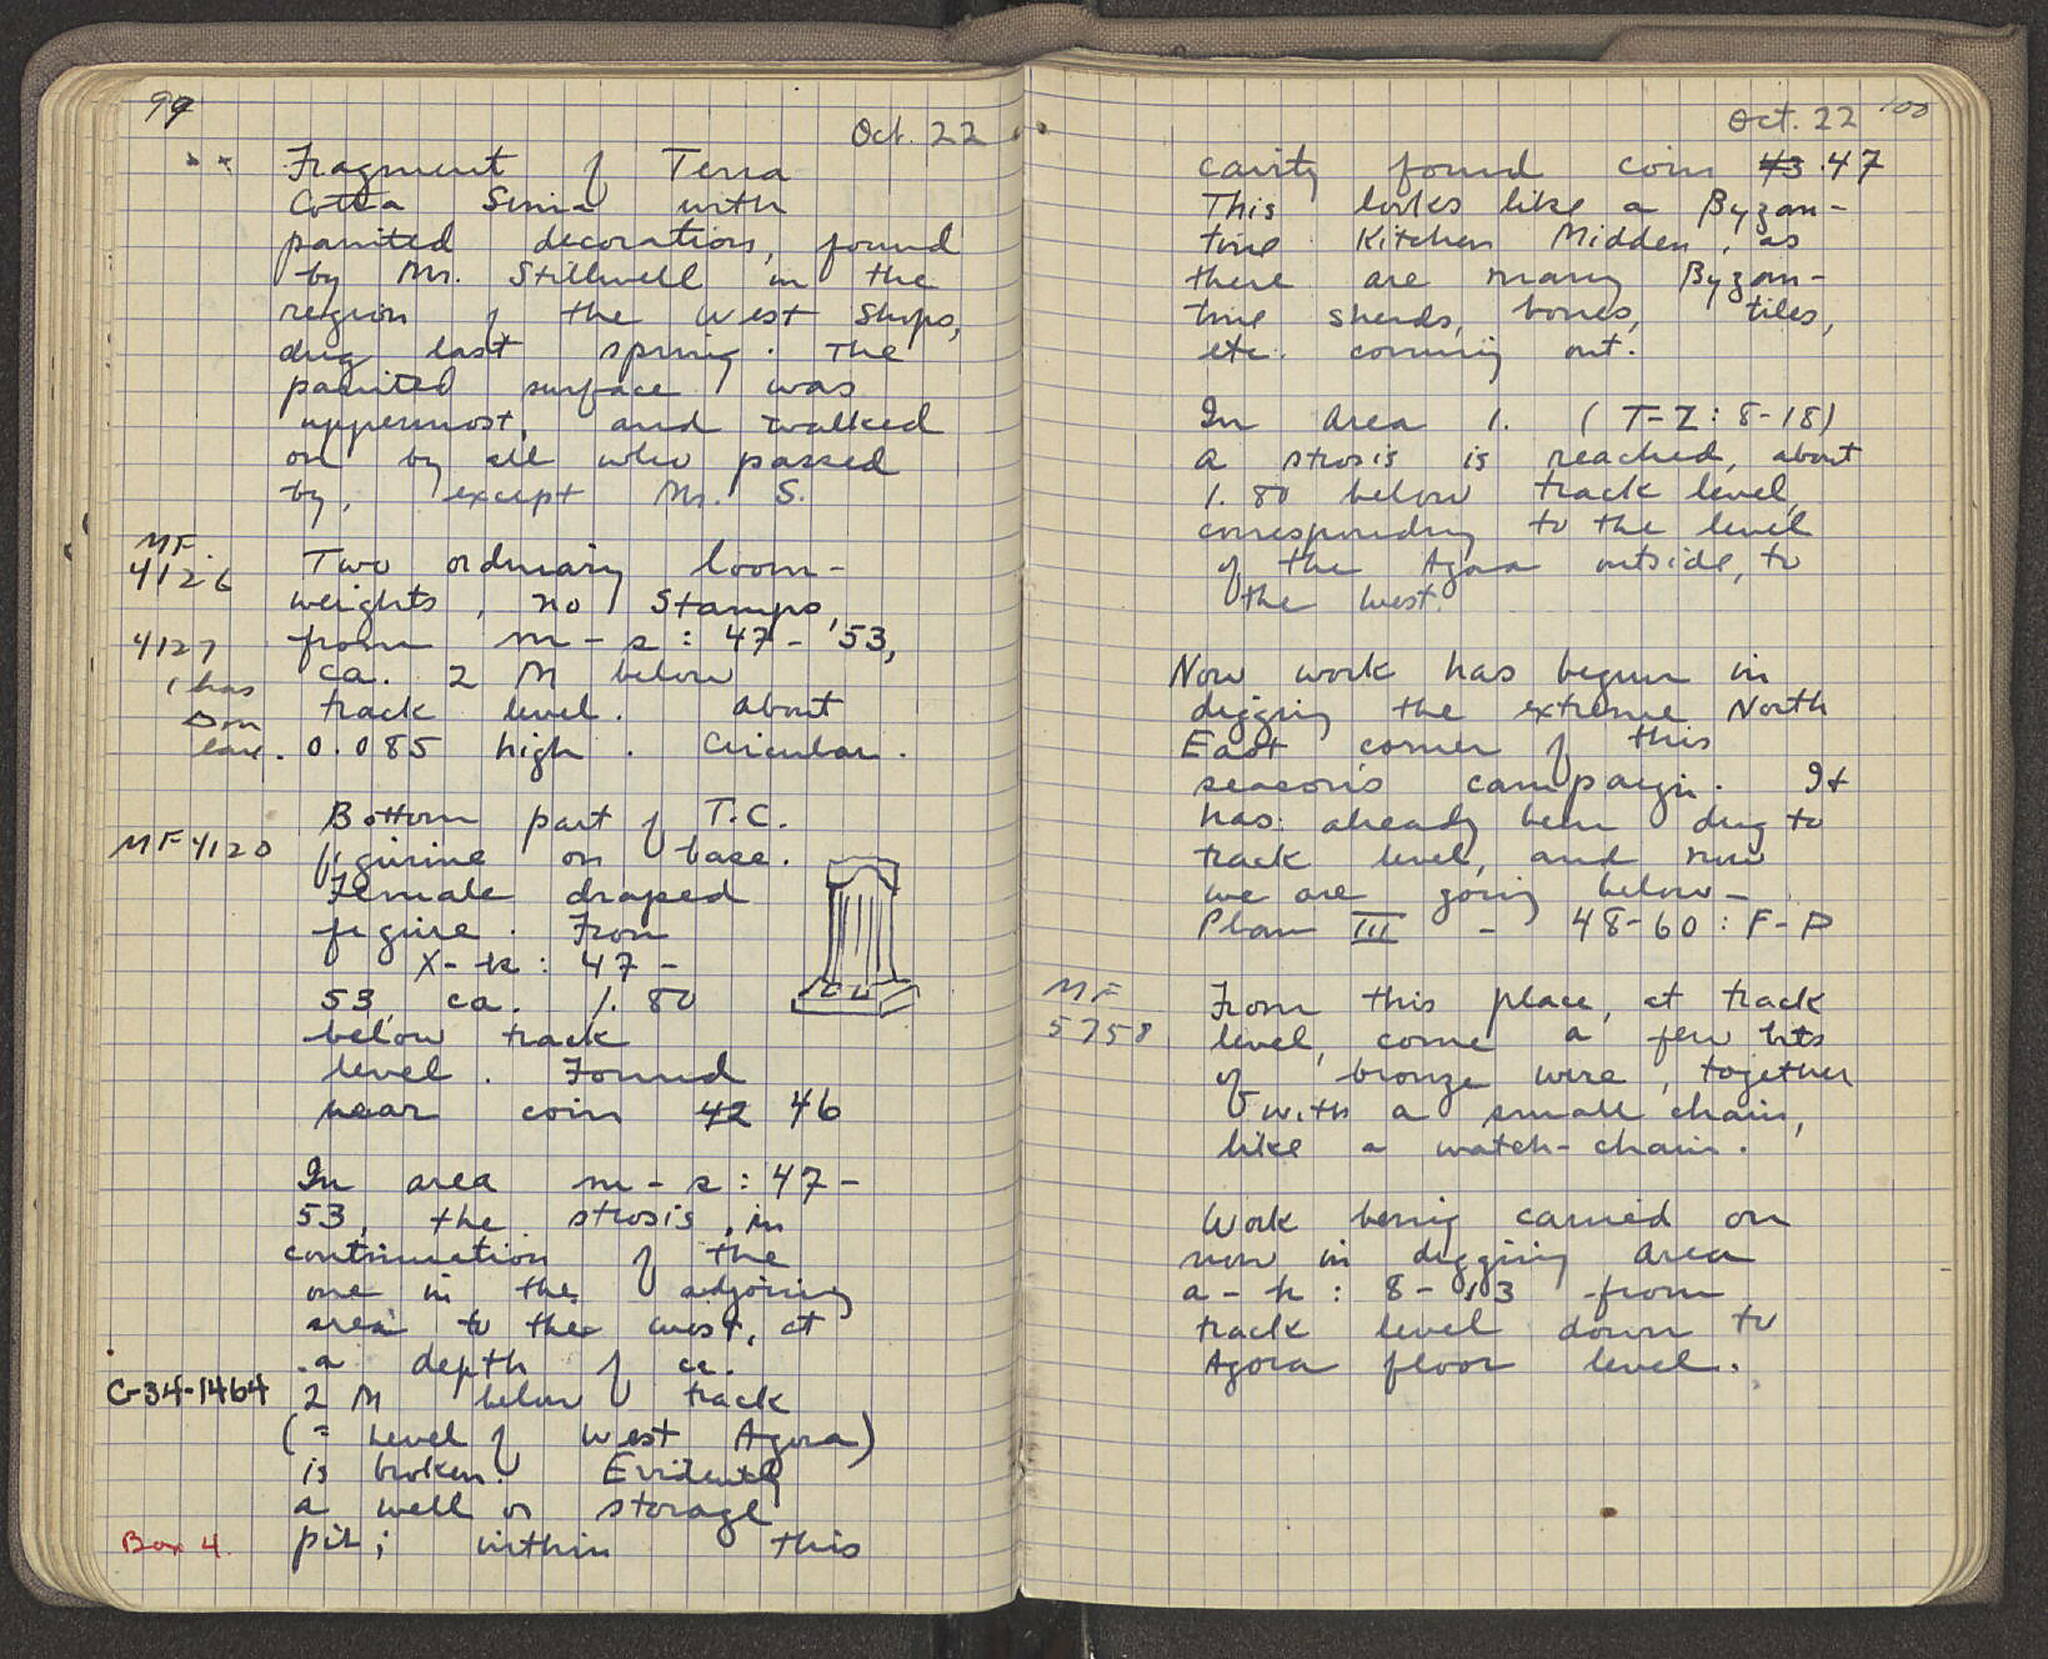 99
Oct. 22
Fragment of Terra
Cotta Sima with
painted decoration, found
by Mr. Stillwell in the
region of the West Shops,
dug last spring. The
painted surface was
uppermost, and walked
on by all who passed
by, except Mr. S.
MF.
4126
Two ordinary loom-
weights, no stamps,
4127
from m-s: 47-53,
ca. 2 M below
1 has
track level. About
0.085 high. Circular.
MF 4120
Bottom part of T.C.
figurine on base.
Female draped
figure. From
X-k: 47-
53, ca. 1.80
below track
level. Found
near coin 42 46
In area m-s: 47-
53, the strosis, in
continuation of the
one in the adjoining
area to the west, at
a depth of ca.
C-34-1464
2 M below track
(= Level of West Agora)
is broken. Evidently
a well or storage
Box 4.
pit; within this
Oct. 22 100
cavity found coin 43.47
This looks like a Byzan-
tine Kitchen Midden, as
there are many Byzan-
tine sherds, bones, tiles,
etc. coming out.
In area 1. (T-Z: 8-18)
a strosis is reached, about
1.80 below track level,
corresponding to the level
of the Agora outside, to
the West.
Now work has begun in
digging the extreme North
East corner of this
season's campaign. It
has already been dug to
track level, and now
we are going below -
Plan III - 48-60: F-P
MF
5758
From this place, at track
level, come a few bits
of bronze wire, together
with a small chain,
like a watch-chain.
Work being carried on
now in digging area
a-k: 8-13 from
track level down to
Agora floor level.